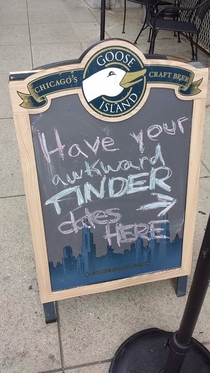 GOOSE
CHICAGO'S
CRAFT BEER
ISLAND
Have your
awkward
TINDER
dates →
HERE